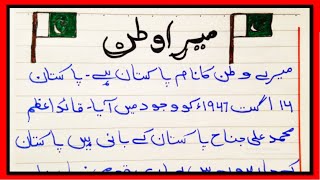 میرا وطن
میرے وطن کا نام پاکستان ہے۔ پاکستان
14 اگست 1947ء کو وجود میں آیا۔ قائد اعظم
محمد علی جناح پاکستان کے بانی ہیں پاکستان